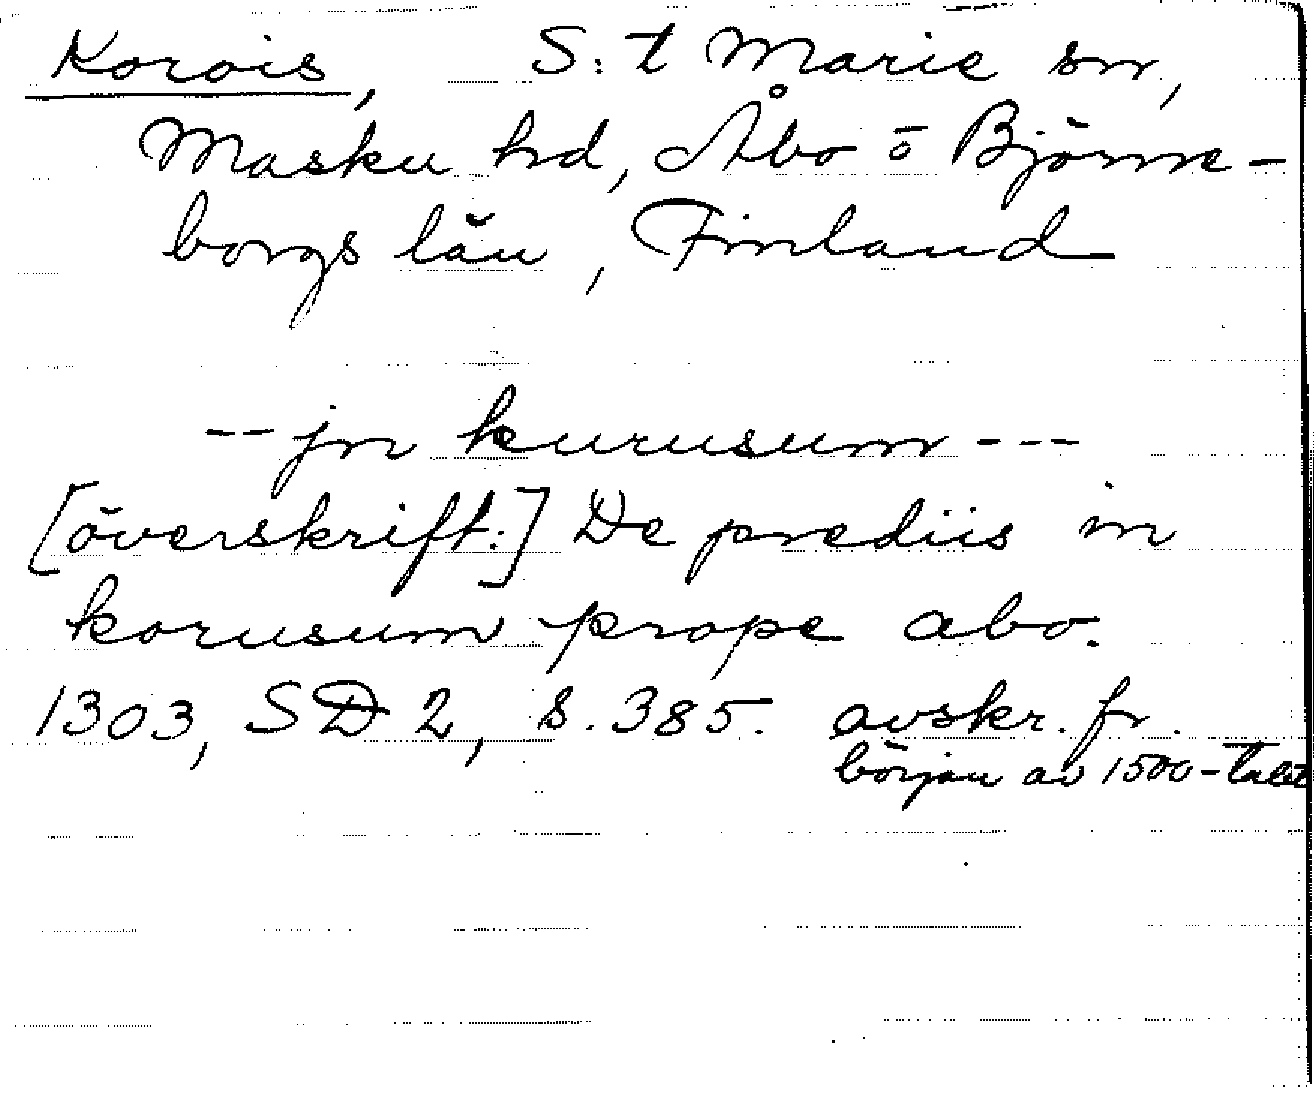 Korois, S:t Marie sn,
Masku hd, Åbo o Björne-
borgs län, Finland
-- jn kurusum ---
[överskrift:] De prediis in
korusum prope abo.
1303, SD 2, s. 385. avskr. fr.
början av 1500-talet